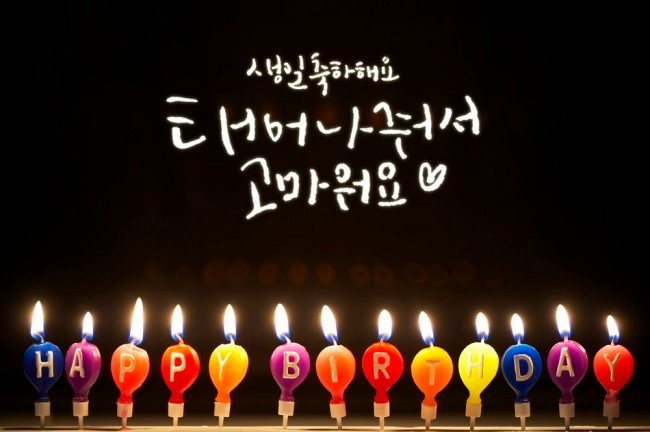 생일축하해요
태어나줘서
고마워요♡
HAPPY BIRTHDAY